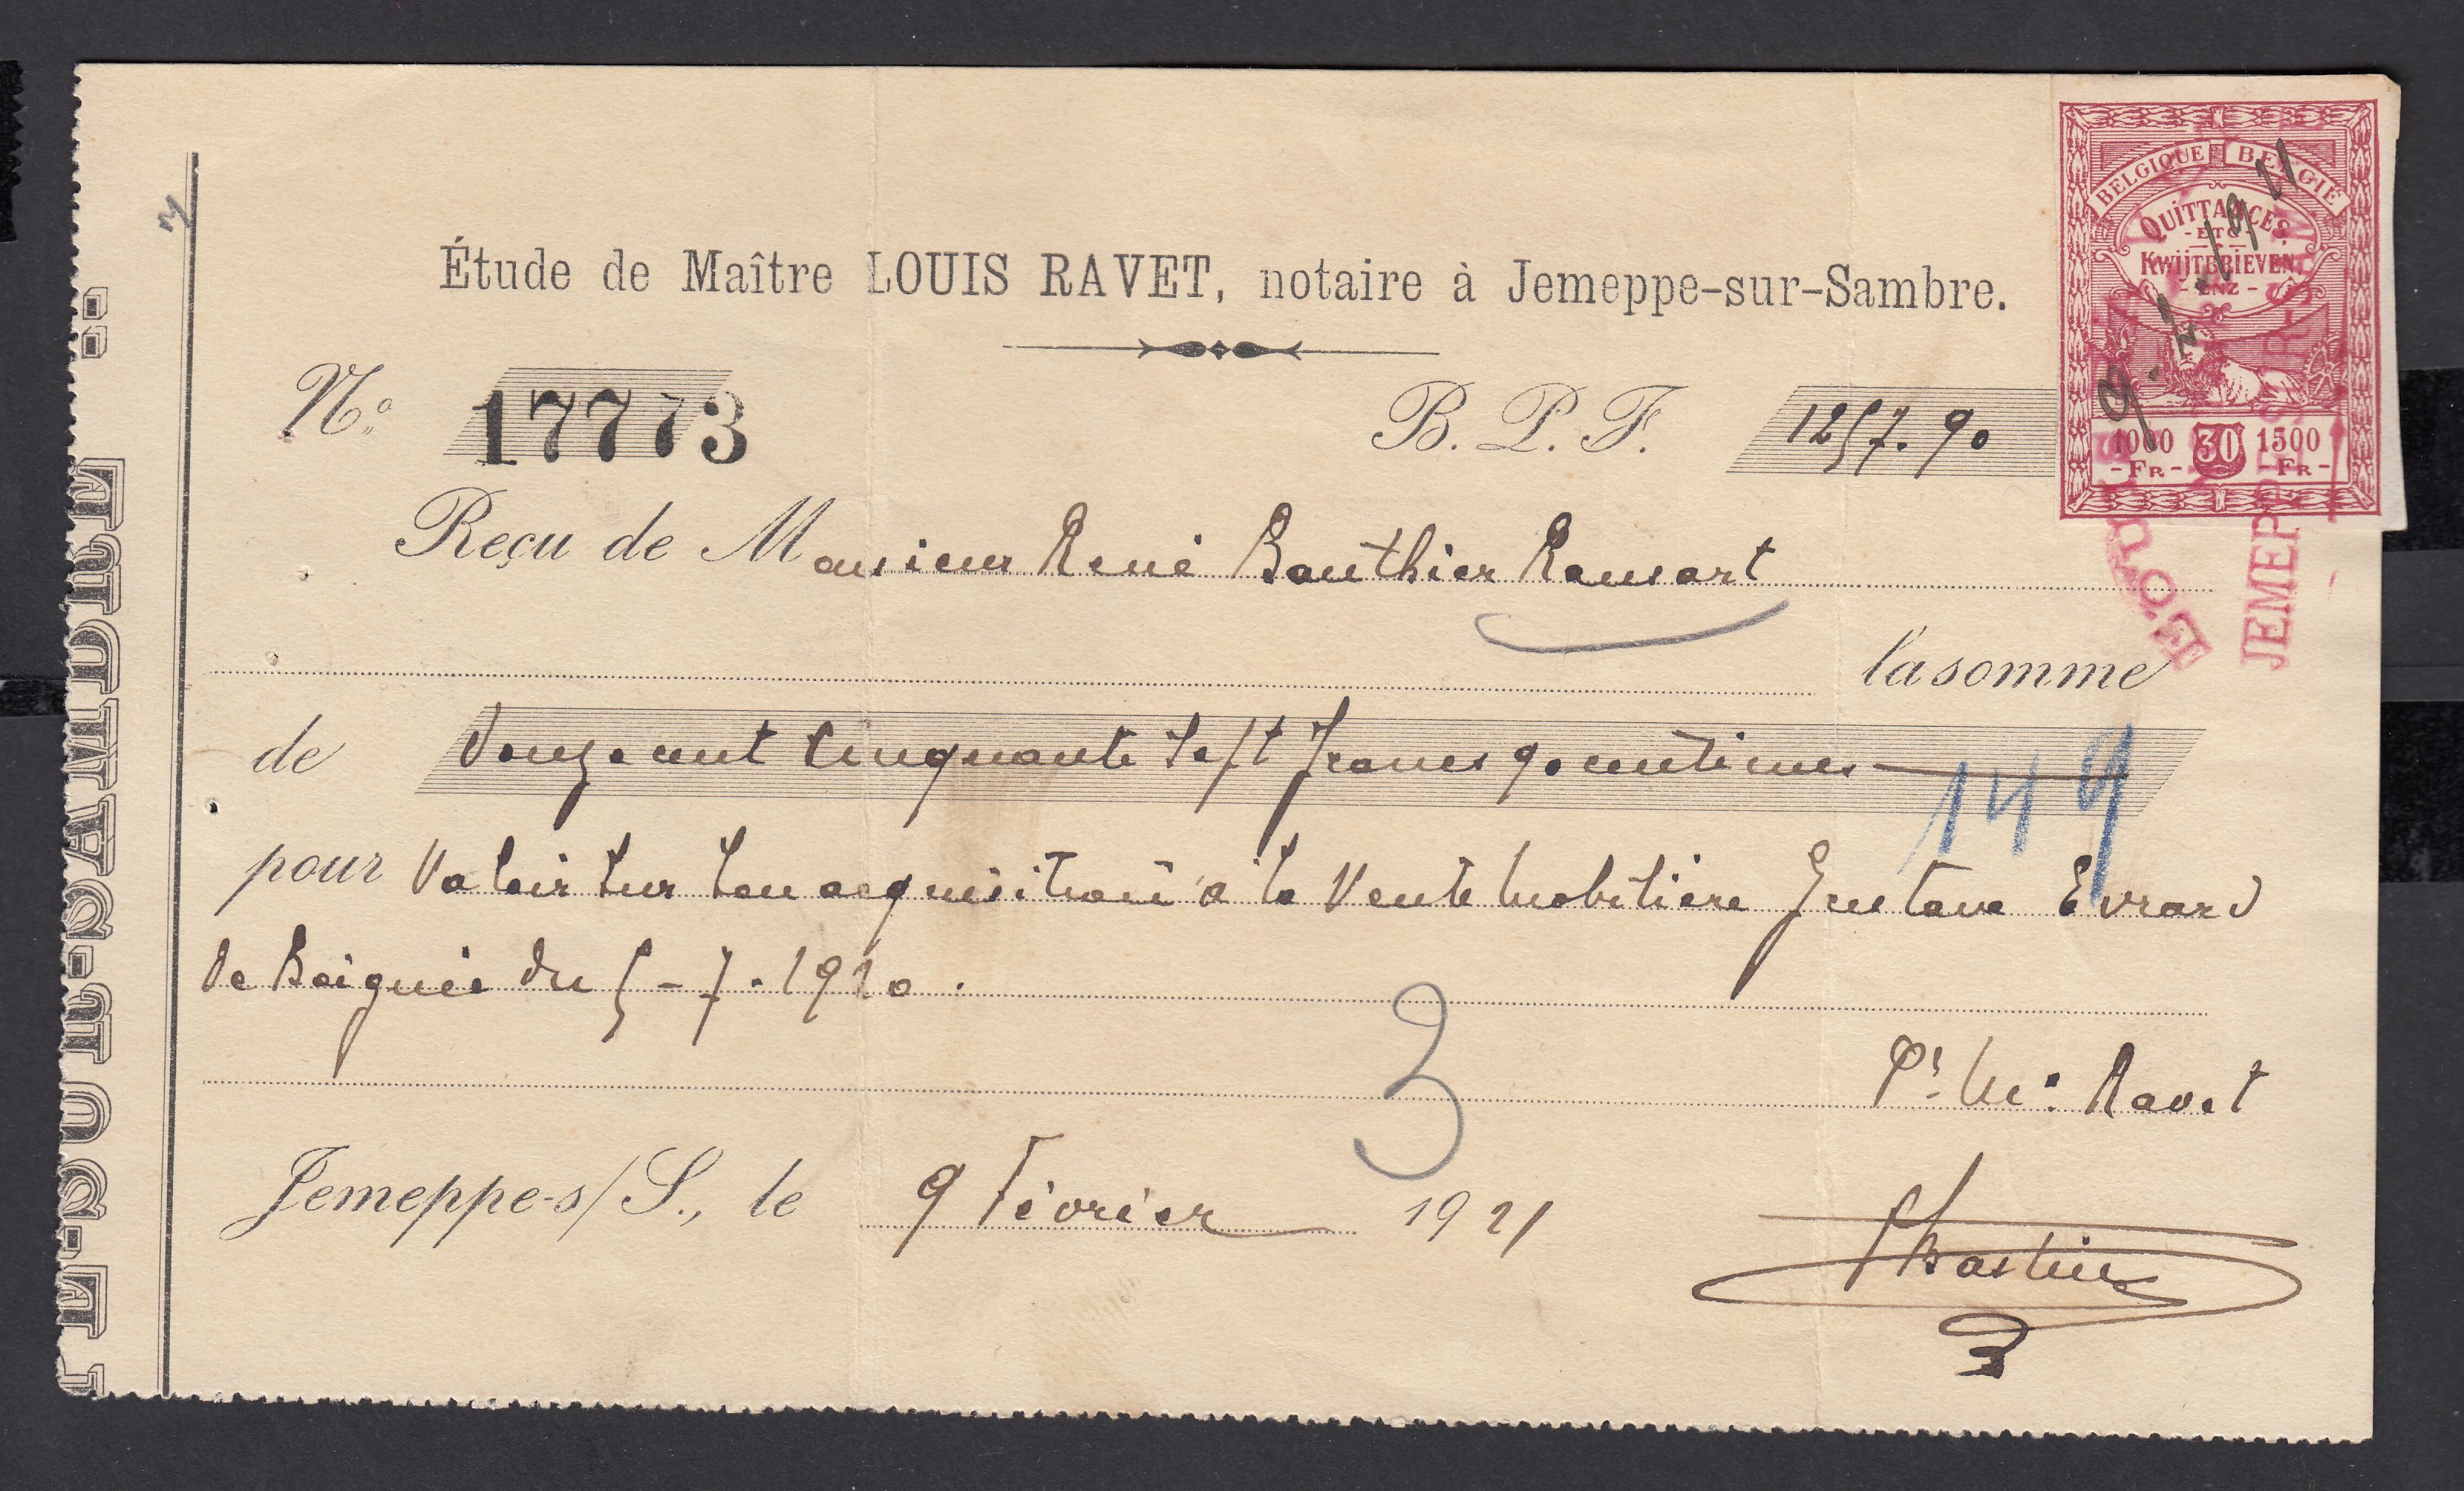 Étude de Maître LOUIS RAVET, notaire à Jemeppe-sur-Sambre.
BELGIQUE BELGIE
QUITTANCES
- ETC -
KWIJTBRIEVEN
- ENZ -
9-2-1921
1000 30 1500
- FR - - FR -
JEMEPP
N° 17773 B. P. F. 1257.90
Reçu de Monsieur René Bauthier Ransart
la somme
de Douze cent cinquante sept francs 90 centimes
149
pour Valoir sur son acquisition à la Vente mobilière Gustave Evrard
de Boignée du 5-7-1920.
3
Pr Me Ravet
Jemeppe-s/S., le 9 Février 1921